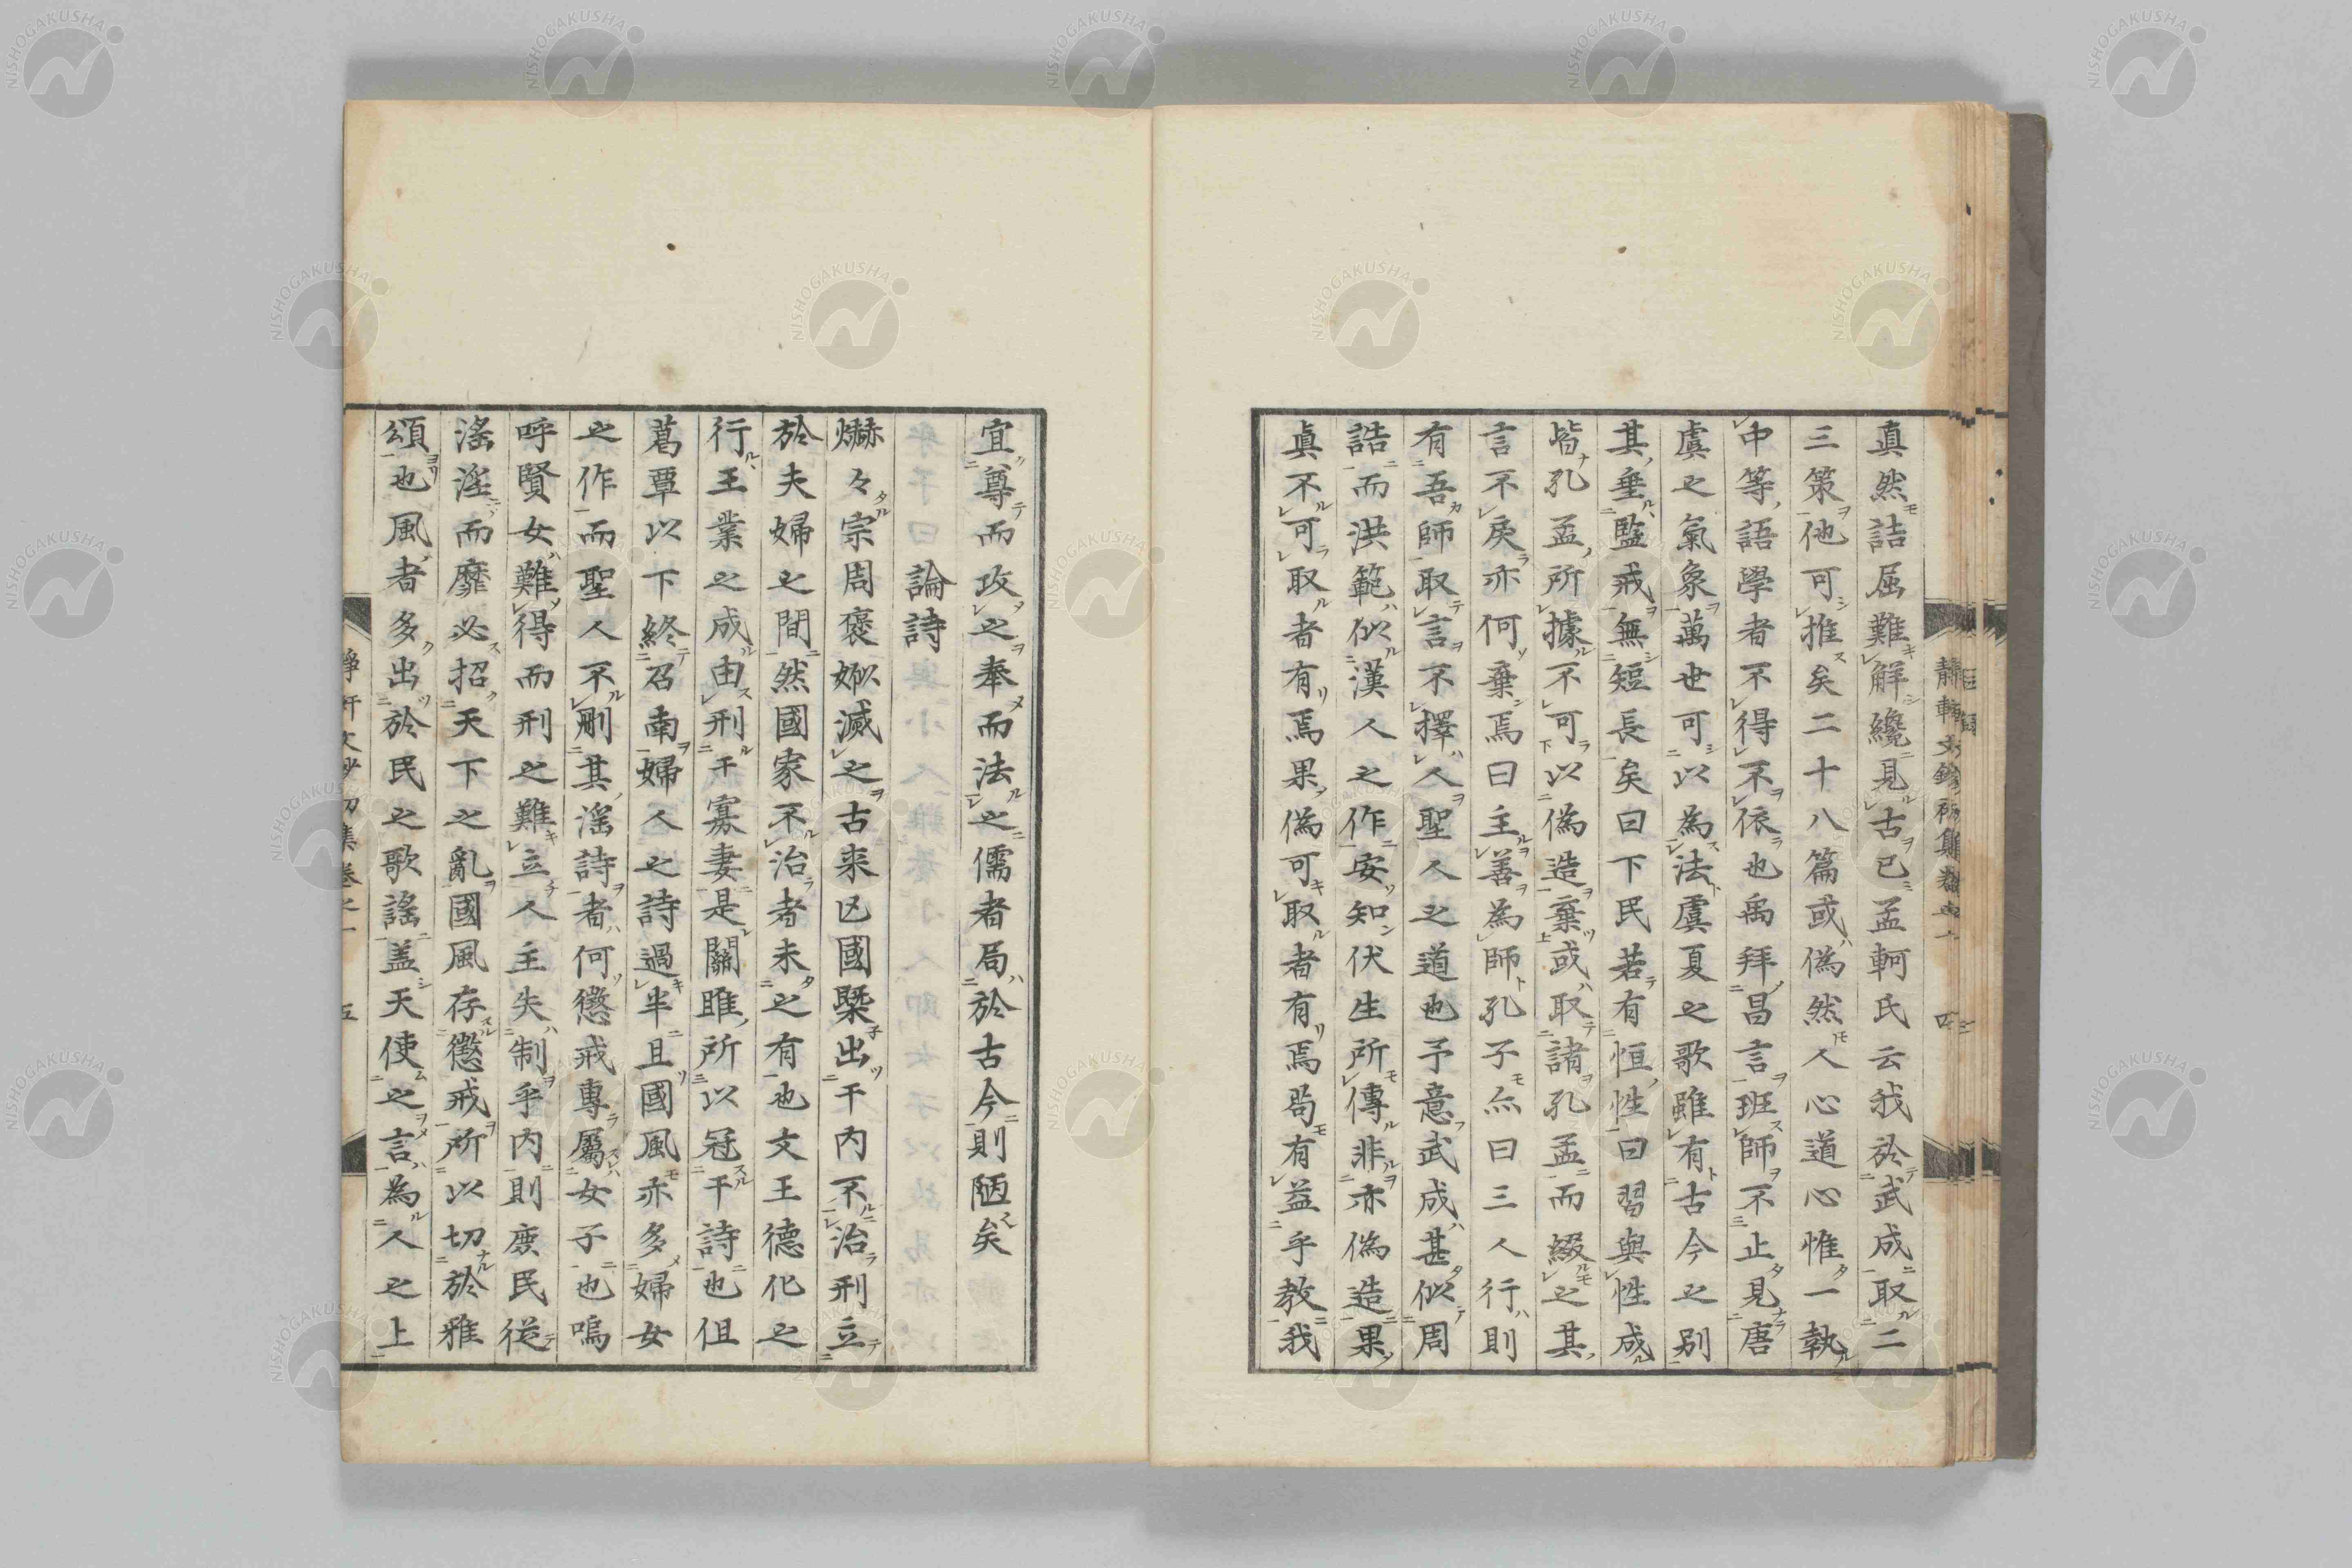 真然詰屈難解纔見古已孟軻氏云我於武成取二
三策他可推矣二十八篇或偽然人心道心惟一執
中等語學者不得不依也禹拜昌言班師不止見唐
虞之氣象萬世可以為法虞夏之歌雖有古今之別
其垂監戒無短長矣曰下民若有恒性曰習與性成
皆孔孟所據不可以偽造棄或取諸孔孟而綴之其
言不戾亦何棄焉曰主善為師孔子亦曰三人行則
有吾師取言不擇人聖人之道也予意武成甚似周
誥而洪範似漢人之作安知伏生所傳非亦偽造果
真不可取者有焉果偽可取者有焉苟有益乎教我
宜尊而攻之奉而法之儒者局於古今則陋矣
論詩
爀々宗周褒姒滅之古来亡國槩出于内不治刑立
於夫婦之間然國家不治者未之有也文王德化之
行王業之成由刑于寡妻是關雎所以冠于詩也但
葛覃以下終召南婦人之詩過半且國風亦多婦女
之作而聖人不刪其淫詩者何懲戒專屬女子也嗚
呼賢女難得而刑之難立人主失制乎内則庶民從
淫而靡必招天下之亂國風存懲戒所以切於雅
頌也風者多出於民之歌謠蓋天使之言為人之上
静軒文鈔初集卷之一 五
NISHOGAKUSHA